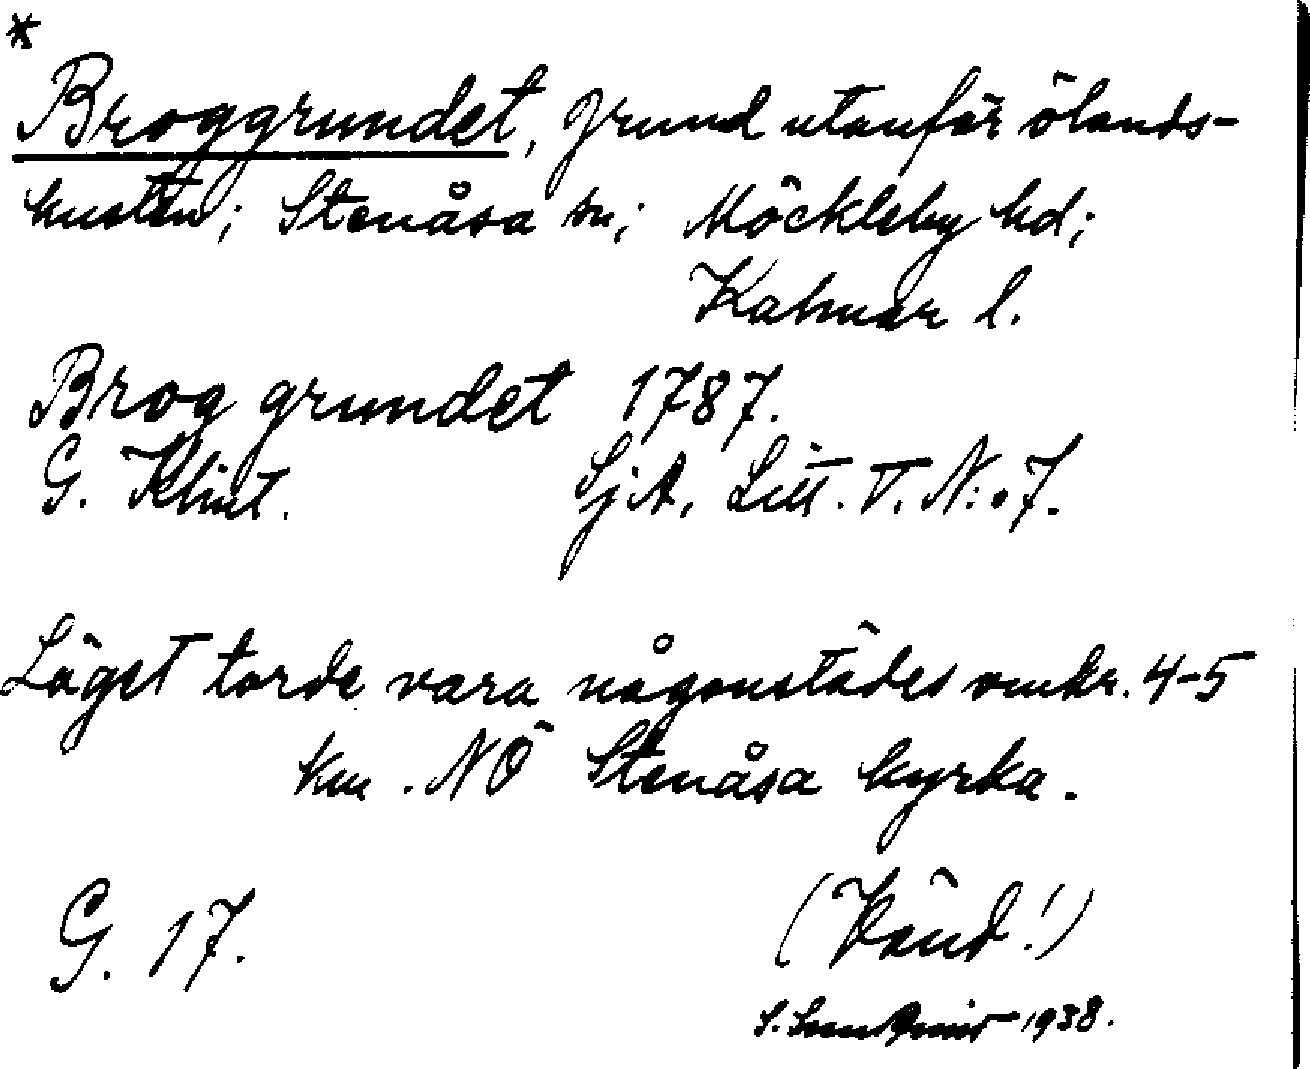 *
Broggrundet, grund utanför ölands-
kusten; Stenåsa sn; Möckleby hd;
Kalmar l.
Brog grundet 1787.
G. Klint. SjA, Litt. V. N:o 7.
Läget torde vara någonstädes omkr. 4-5
km. NÖ Stenåsa kyrka.
G. 17. (Vänd!)
S. 1938.